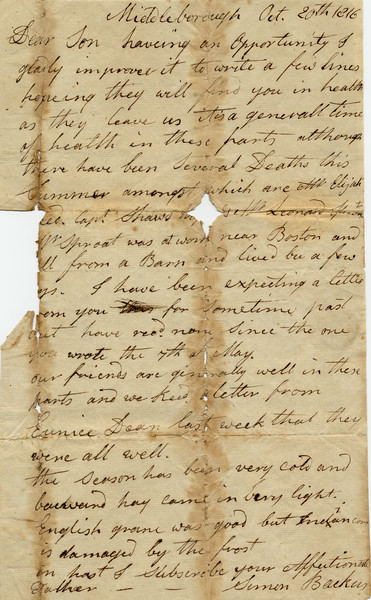 Middleborough Oct. 20th 1816
Dear Son haveing an Opportunity I
gladly improve it to write a few lines
hopeing they will find you in health
as they leave us it is a generall time
of health in these parts although
there have been Several Deaths this
Summer amongst which are Mr Elijah
Capt. Shaws Leonard
Mr Sproat was at work near Boston and
ll from a Barn and lived but a few
ys. I have been expecting a letter
rom you for Sometime past
ut have recd. none Since the one
you wrote the 7th of May.
our friends are generally well in these
parts and we Recd. letter from
Eunice Dean last week that they
were all well.
the Season has been very cold and
backward hay came in very light.
English graine was good but Indian corn
is damaged by the frost
in hast I Subscribe your Affectionate
Father — — Simon Backus